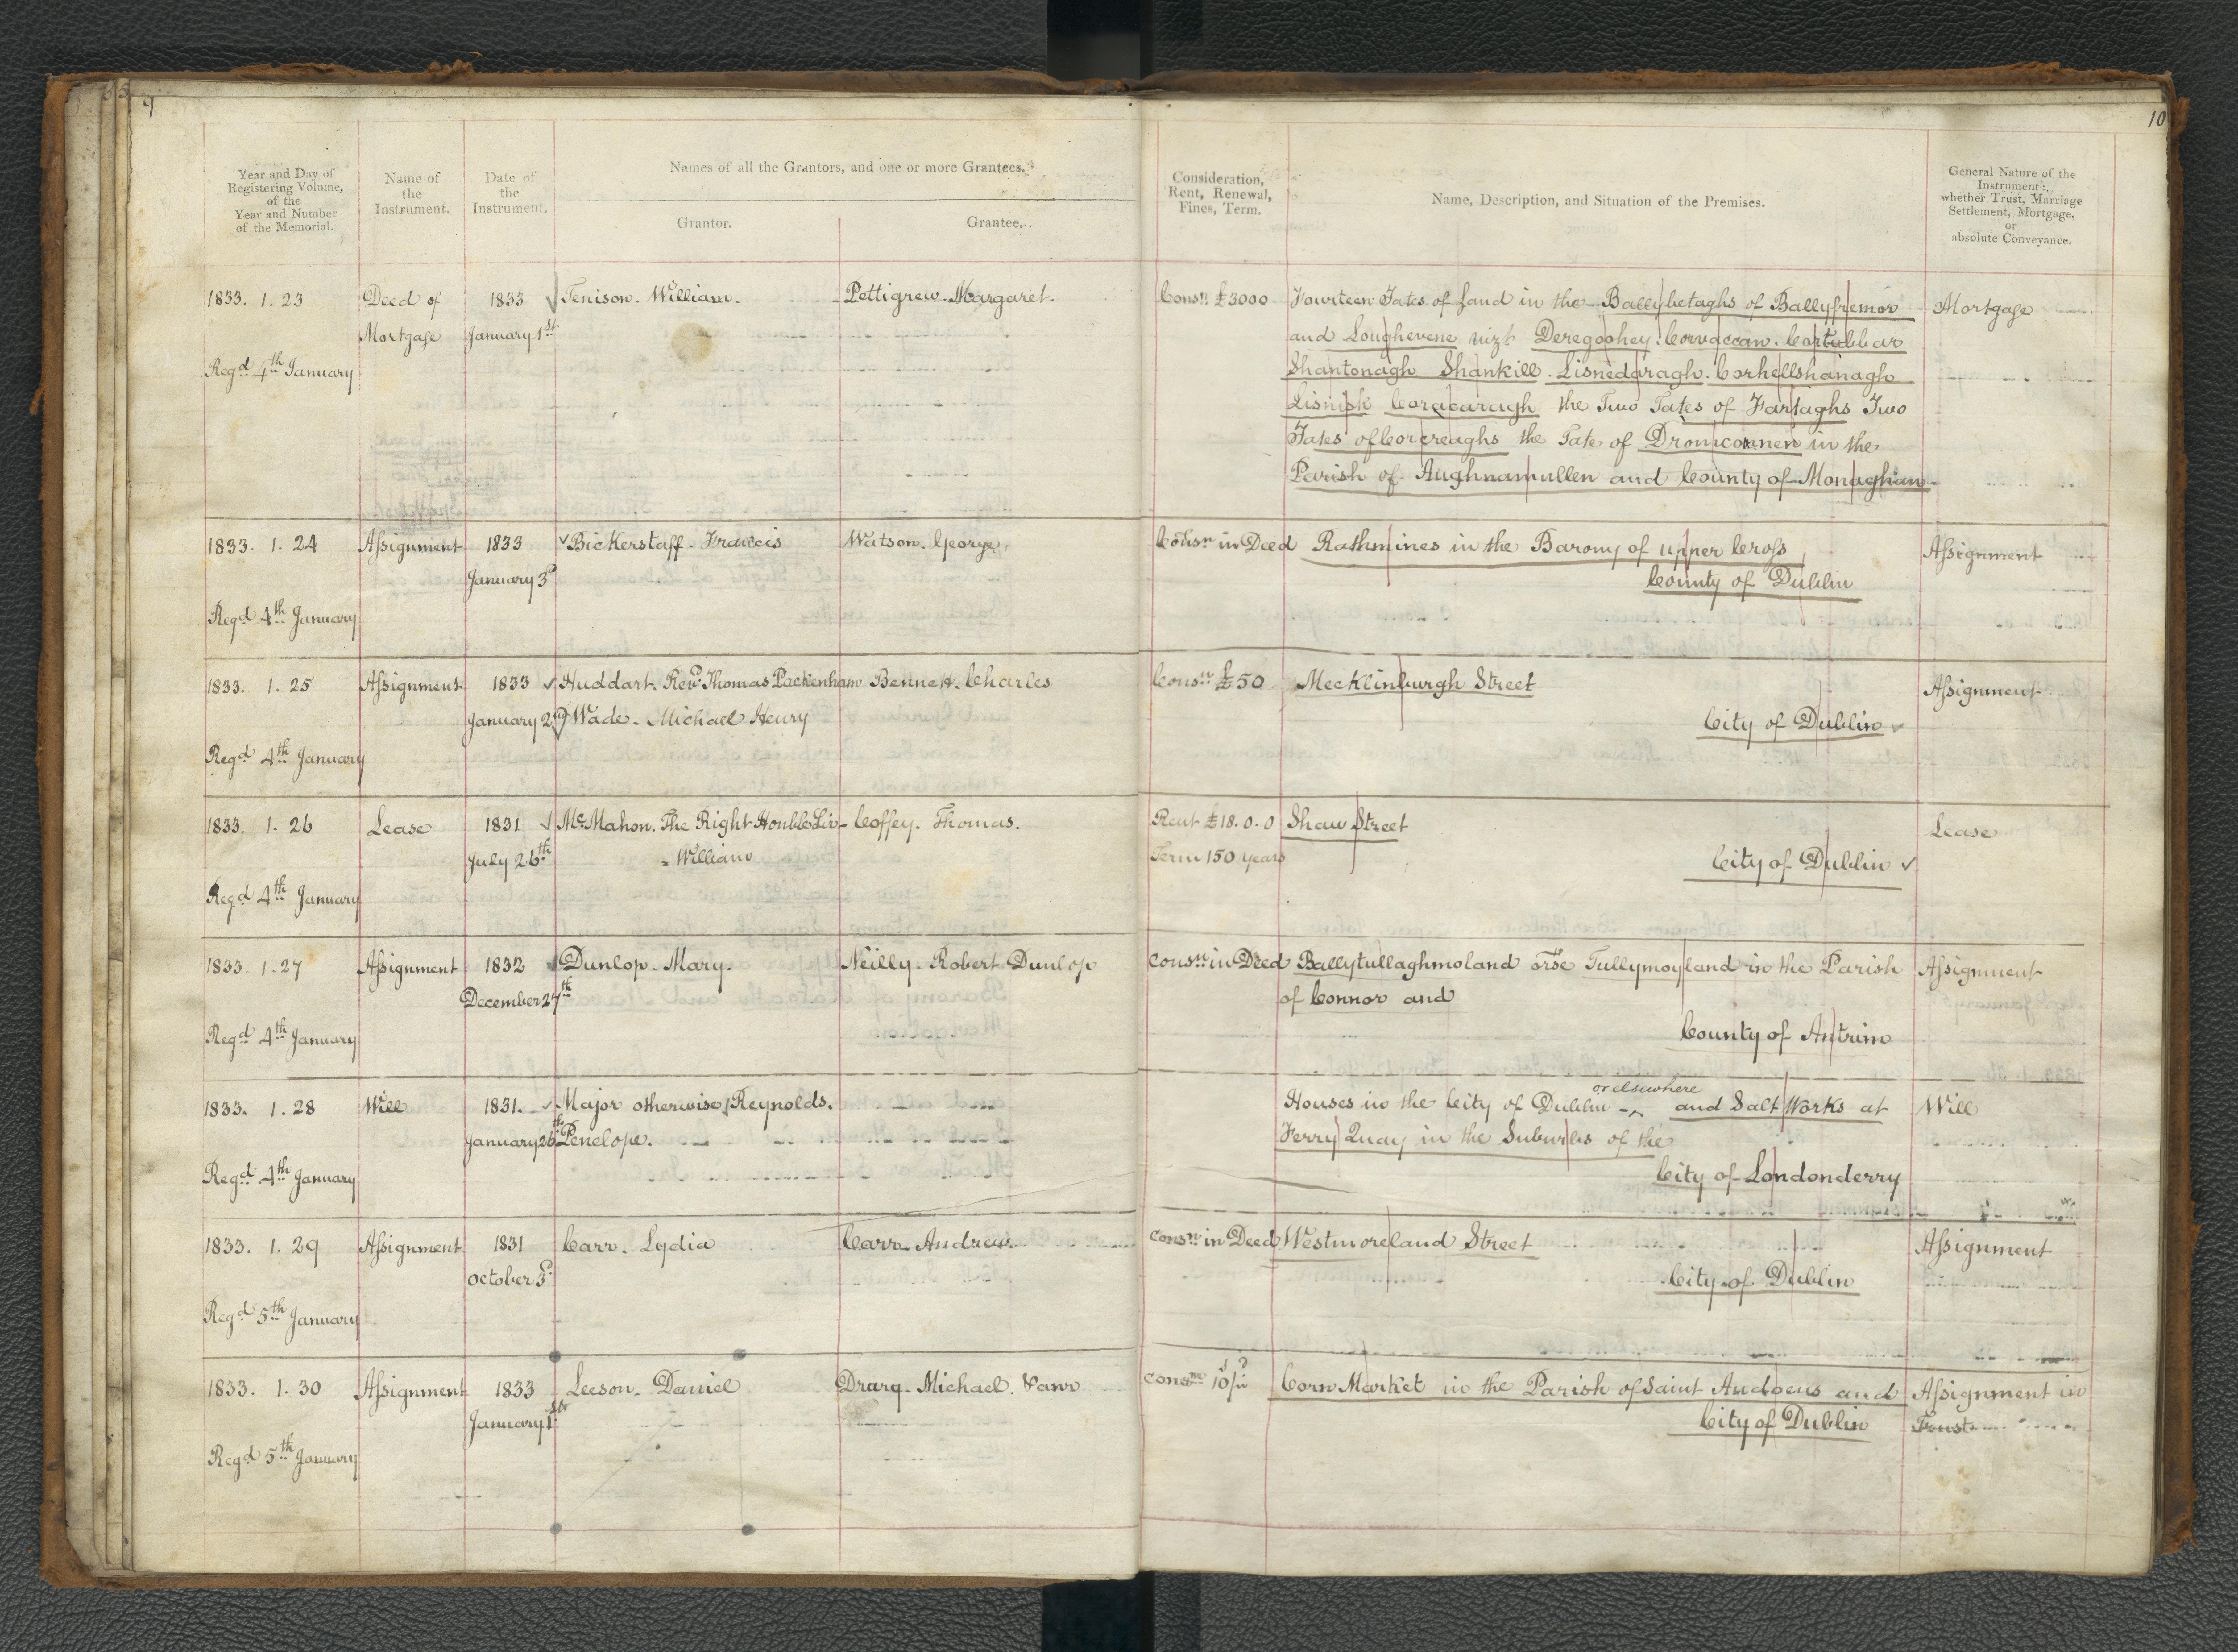 9
10
Year and Day of
Registering Volume,
of the
Year and Number
of the Memorial.
Name of
the
Instrument.
Date of
the
Instrument.
Names of all the Grantors, and one or more Grantees.
Grantor.
Grantee.
Consideration,
Rent, Renewal,
Fines, Term.
Name, Description, and Situation of the Premises.
General Nature of the
Instrument:
whether Trust, Marriage
Settlement, Mortgage,
or
absolute Conveyance.
1833. 1. 23 Deed of 1833 Tenison. William. Pettigrew. Margaret. Consn. £3000 Fourteen Tates of Land in the Ballybetaghs of Ballyfremor Mortgage
Mortgage January 1st and Loughevene vizt. Deregoohey. Corvaccan. Cortubbar
Regd. 4th January Shantonagh Shankill. Lisnedaragh. Corhellshinagh
Lisnisk Coracaragh the Two Tates of Fartaghs Two
Tates of Corcreaghs the Tate of Dromconnen in the
Parish of Aughnamullen and County of Monaghan
1833. 1. 24 Assignment 1833 Bickerstaff. Francis Watson. George Consn in Deed Rathmines in the Barony of upper Cross Assignment
January 3d County of Dublin
Regd 4th January
1833. 1. 25 Assignment 1833 Huddart. Revd. Thomas Packenham Bennett. Charles Consn £50 Mecklinburgh Street Assignment
January 2d Wade. Michael Henry City of Dublin
Regd 4th January
1833. 1. 26 Lease 1831 McMahon. The Right Honble Sir Coffey. Thomas. Rent £18. 0. 0 Shaw Street Lease
July 26th William Term 150 years City of Dublin
Regd 4th January
1833. 1. 27 Assignment 1832 Dunlop. Mary. Neilly. Robert Dunlop Consn in Deed Ballytullaghmoland orse Tullymoyland in the Parish Assignment
December 27th of Connor and
Regd 4th January County of Antrim
1833. 1. 28 Will 1831. Major otherwise Reynolds. Houses in the City of Dublin or elsewhere and Salt Works at Will
January 26th Penelope. Ferry Quay in the Suburbs of the
Regd 4th January City of Londonderry
1833. 1. 29 Assignment 1831 Carr. Lydia Carr. Andrew Consn in Deed Westmoreland Street Assignment
October 3d. City of Dublin
Regd 5th January
1833. 1. 30 Assignment 1833 Leeson. Daniel Michael. Consn 10s/ Corn Market in the Parish of Saint Audoens and Assignment in
January 1st City of Dublin Trust
Regd 5th January